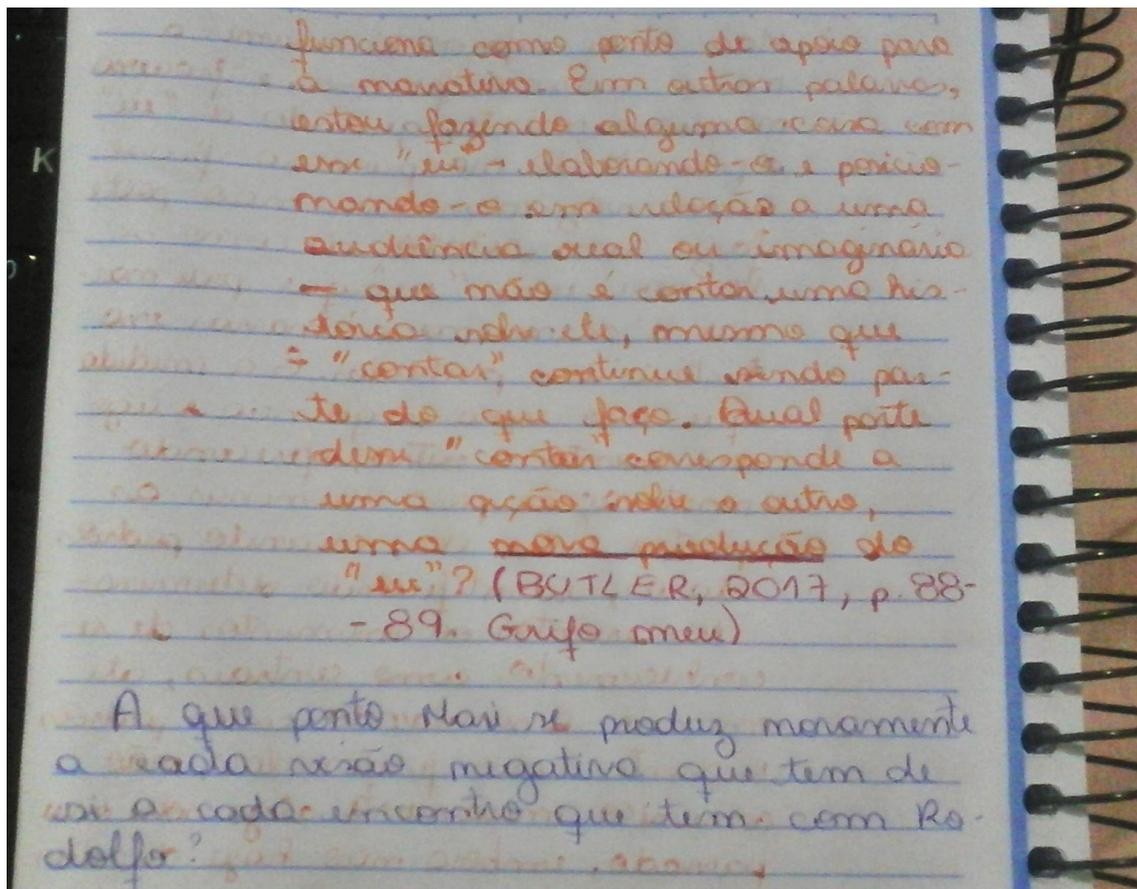 funciona como ponto de apoio para
a narrativa. Em outras palavras,
estou fazendo alguma coisa com
esse "eu - elaborando-o e posicio-
nando-o em relação a uma
audiência real ou imaginário
- que não é contar uma his-
tória sobre ele, mesmo que
"contar", continue sendo par-
te do que faço. Qual parte
desse "contar" corresponde a
uma ação sobre o outro,
uma nova produção do
"eu"? (BUTLER, 2017, p. 88-
-89. Grifo meu)
A que ponto Mari se produz novamente
a cada visão negativa que tem de
si e cada encontro que tem com Ro-
dolfo?
K